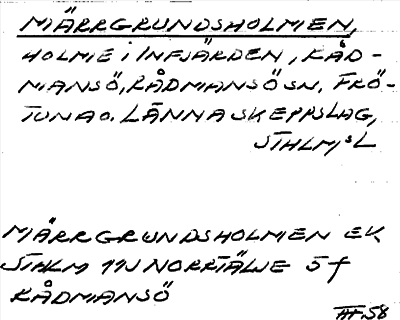 MÄRRGRUNDSHOLMEN,
HOLME i INFJÄRDEN, RÅD-
MANSÖ, RÅDMANSÖ SN. FRÖ-
TUNA O. LÄNNA SKEPPSLAG,
STHLMS L
MÄRRGRUNDSHOLMEN EK
STHLM 11J NORRTÄLJE 5 f
RÅDMANSÖ
HF. 58